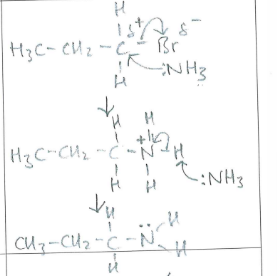 H
δ+ δ-
H₃C-CH₂-C-Br
H
:NH₃
H H
H₃C-CH₂-C-N-H
+
H H
:NH₃
H
CH₃-CH₂-C-N̈
H
H
H